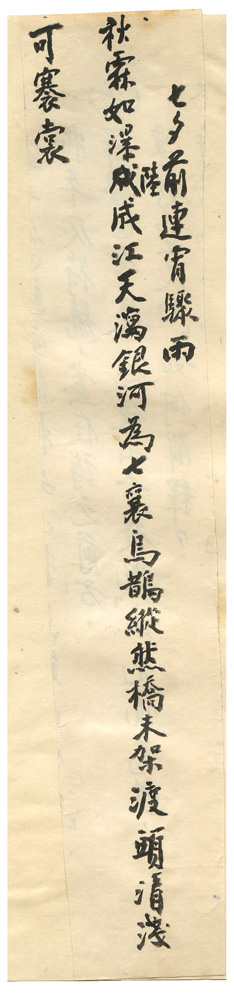 七夕前連宵驟雨
陸
秋霖如瀑成成江天瀉銀河為七襄烏鵲縱然橋未架渡頭清淺
可褰裳